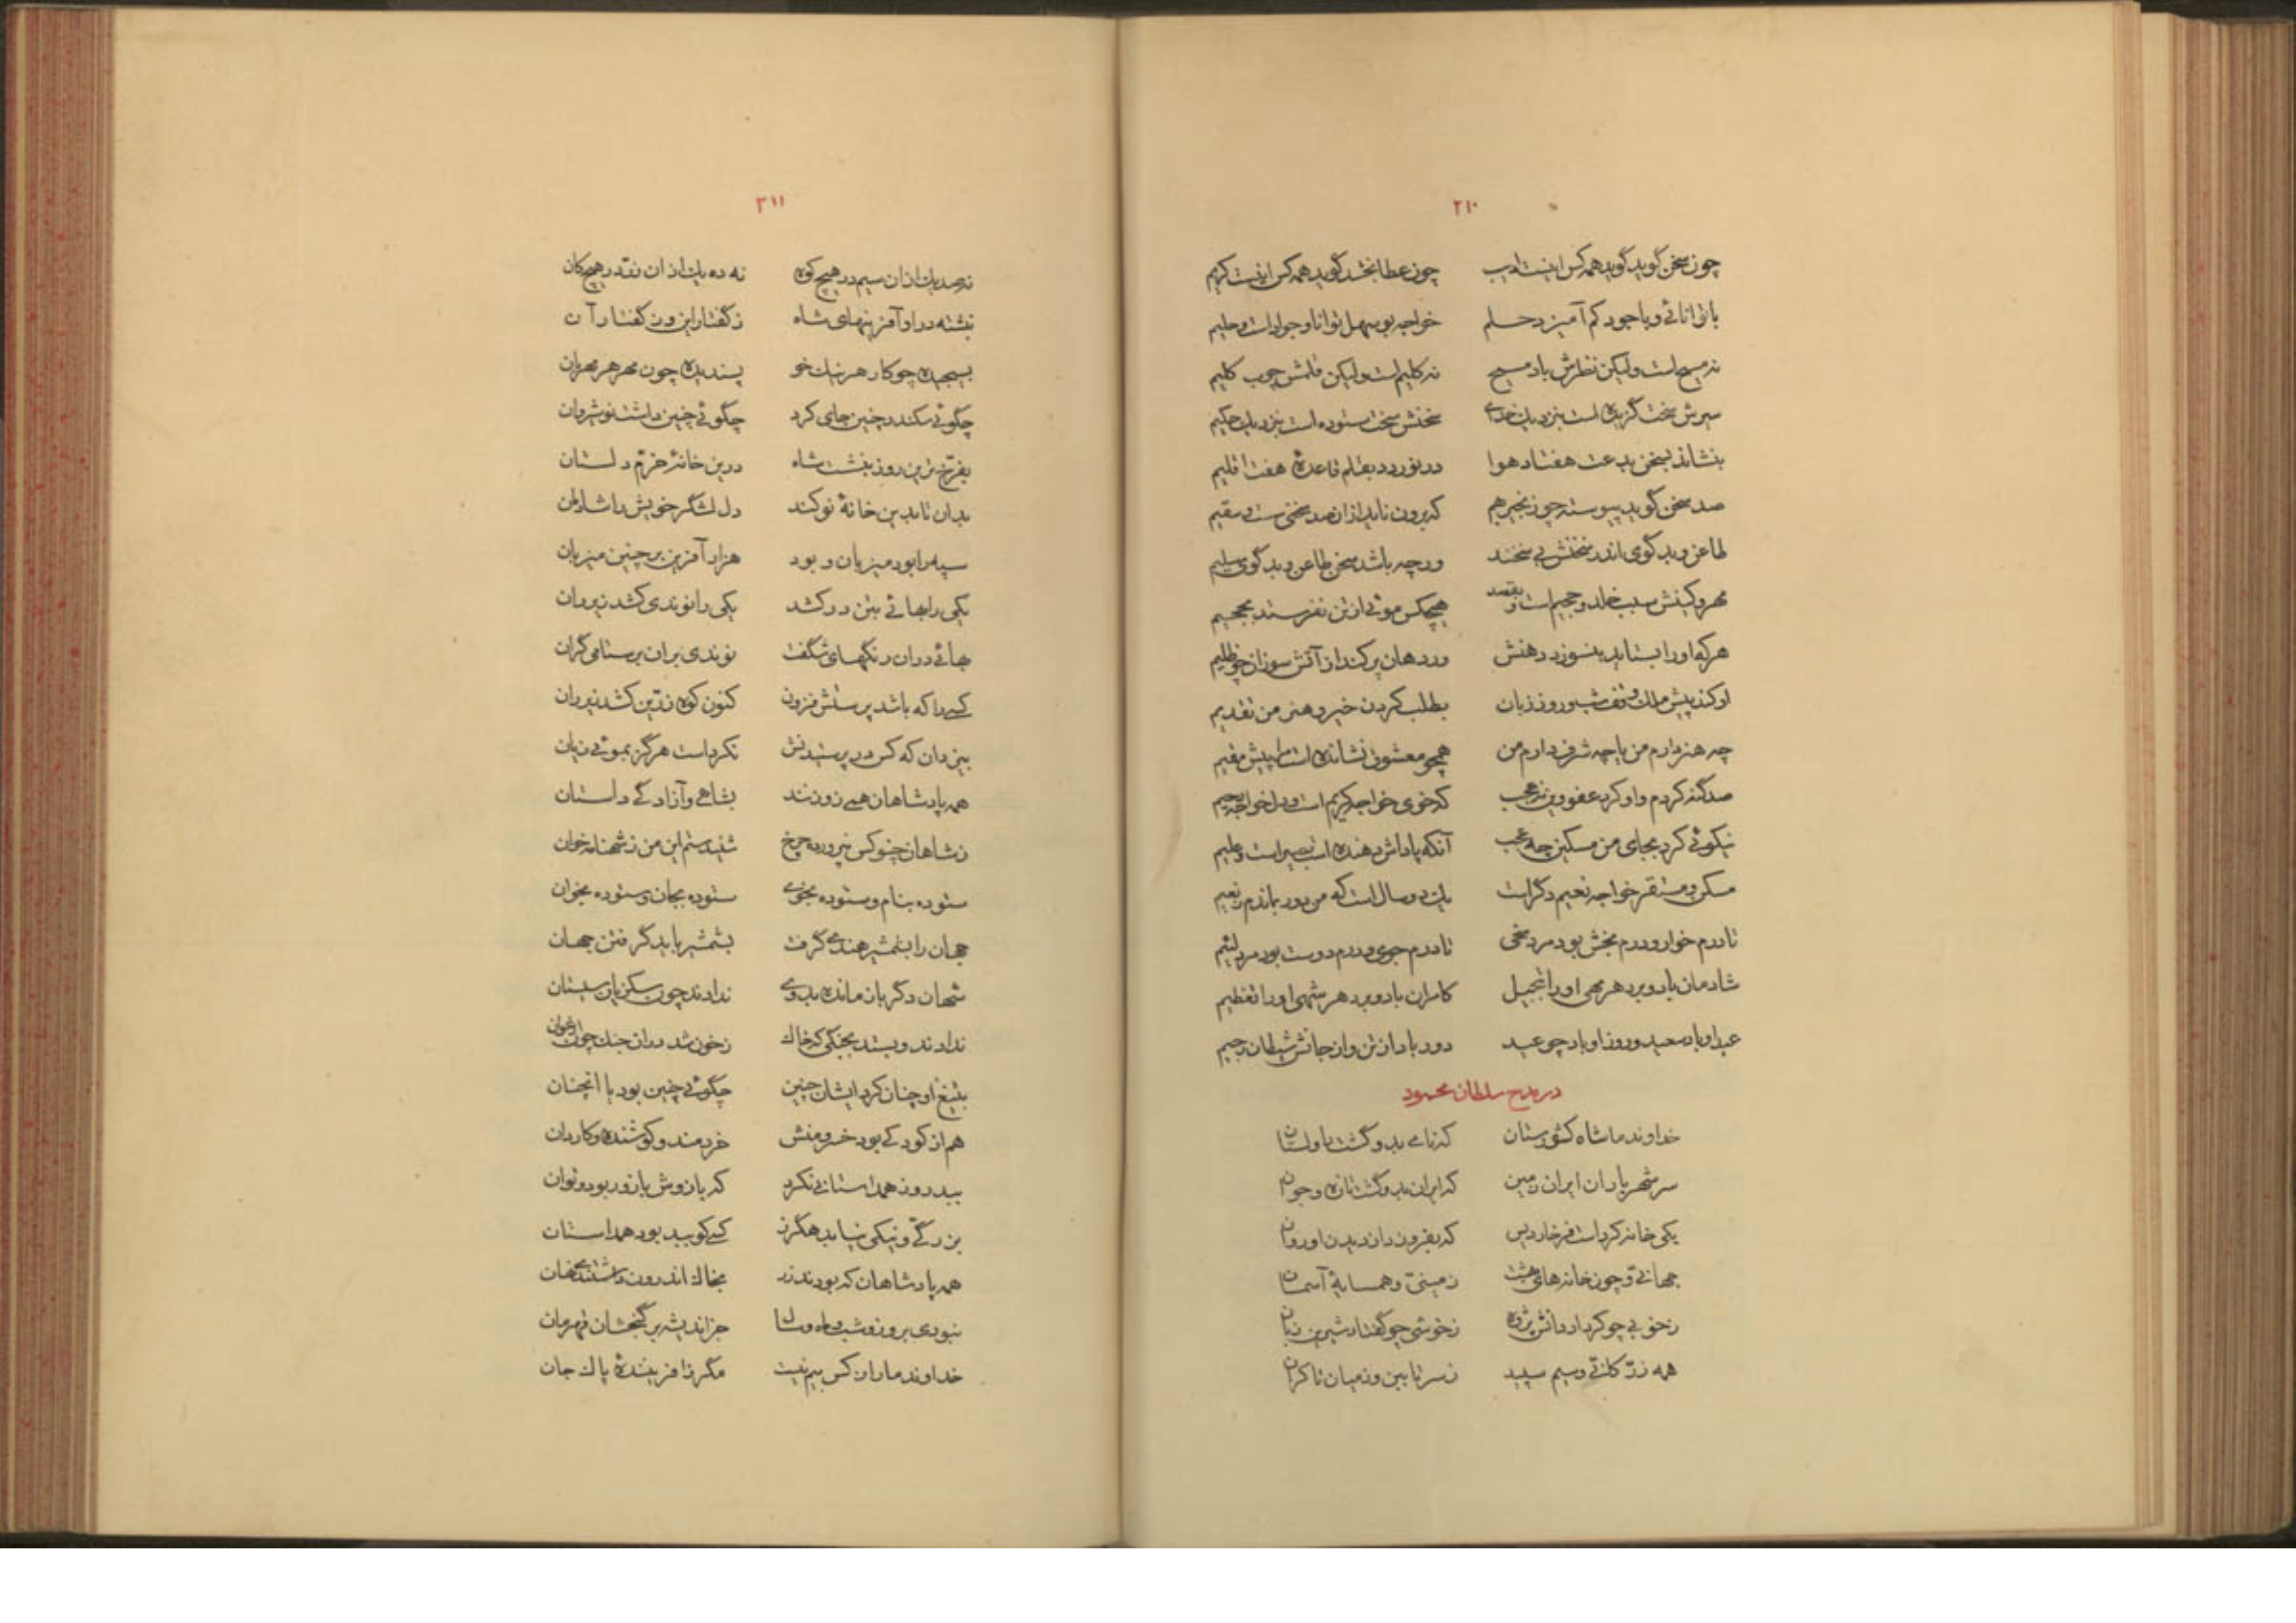 ۲۱۰
چون سخن گوید گوید همه کس اینت ادیب چون عطا بخشد گوید همه کس اینت کریم
با توانائی و با جود کم آمیزد حلم خواجه بوسهل توانا و جوادات و حلیم
نه مسیح است ولیکن نظرش باد مسیح نه کلیم است ولیکن قلمش چوب کلیم
سیرش سخت گزیده است بنزدیک خدای سخنش سخت ستوده است بنزدیک حکیم
بنشاند بسخن بدعت هفتاد هوا در نوردد بقلم قاعدهٔ هفت اقلیم
صد سخن گوید پیوسته چو زنجیر بهم که برون ناید از آن صد سخنی سست و سقیم
طاعن و بد گوی اندر سخنش بی سخنند ورچه باشد سخن طاعن و بد گوی سلیم
مهر و کینش سبب خلد و جحیم است و بقصد هیچکس موئی از تن نفرستد بجحیم
هر که او را بستاید بنسوزد دهنش ور دهان پر کند از آتش سوزان چو ظلیم
او کند پیش ملک وقف شب و روز زبان بطلب کردن خیر و هنر من تقدیم
چه هنر دارم من یا چه شرف دارم من همچو معشوق نشانده است مرا پیش مقیم
صد گنه کردم و او کرد عفو وین نه عجب که خوی خواجه کریم است و دل خواجه رحیم
نیکوئی کرد بجای من مسکین چه عجب آنکه پاداش دهنده است بصیر است و علیم
مسکن و مستقر خواجه نعیم دگر است یک دو سال است که من دور بماندم ز نعیم
تا درم خوار و درم بخش بود مرد سخی تا درم جوی و درم دوست بود مرد لئیم
شادمان باد و برد هر مهی او را تبجیل کامران باد و برد هر شهی او را تعظیم
عید او باد سعید و روز او باد چو عید دور باد از تن و از جانش شیطان رجیم
در مدح سلطان محمود
خداوند ما شاه کشورستان که نامی بدو گشت زاولستان
سر شهریاران ایران زمین که ایران بدو گشت تازه و جوان
یکی خانه کرد است فرخاردیس که بفروزد از دیدن او روان
جهانی و چون خانه های بهشت زمینی و همسایهٔ آسمان
ز خوبی چو کردار دانش پژوه ز خوشی چو گفتار شیرین زبان
همه زرّ کانی و سیم سپید ز سر تا ببین وز میان تا کران
۲۱۱
نه صد یک از آن سیم در هیچ کوه نه ده یک از آن زر در هیچ کان
نبشته در او آفرینهای شاه ز گفتار این و ز گفتار آن
بسیچیده چو کار هر نیک خو پسندیده چون مهر هر مهربان
چگوئی سکندر چنین جای کرد چگوئی چنین داشت نوشروان
بفرخ ترین روز بنشست شاه درین خانهٔ خرّم دلستان
بدان تا بدین خانهٔ نو کند دل لشگر خویش را شادمان
سپه را بود میزبان و بود هزار آفرین بر چنین میزبان
یکی را بهائی بتن در کشد یکی را نوندی کشد زیر ران
بهائی در آن رنگهای شگفت نوندی بر آن بر ستامی گران
کسی را که باشد پرستش فزون کنون کوه زرّین کشد زیر ران
بیزدان که کس در پرستیدنش نکرد است هرگز بموئی زیان
همه پادشاهان همی زو زنند بشاهی و آزادگی داستان
ز شاهان چنو کس نپرورد چرخ شنیدستم این من ز شهنامه خوان
ستوده بنام و ستوده بخوی ستوده بجان و ستوده بخوان
جهان را بشمشیر هندی گرفت بشمشیر باید گرفتن جهان
شهان دگر باز مانده بدوی ندادند چون سکزیان سیستان
ندادند و بستد بجنگی که خاک ز خون شد در آن جنگ چون ارغوان
بتیغ او چنان کرد ایشان چنین چگوئی چنین بود با آنچنان
هم از کودکی بود خسرو منش خردمند و کوشنده و کاردان
ببد روز همداستانی نکرد که بازوش با زور بود و توان
بزرگی و نیکی نیابد هگرز کسی کو ببد بود همداستان
همه پادشاهان که بودند زر بخاک اندرون داشتندی نهان
نبودی بروز و شب و ماه و سال جز اندیشه بر گنجشان قهرمان
خداوند ما را ز کس بیم نیست مگر ز آفرینندهٔ پاک جان